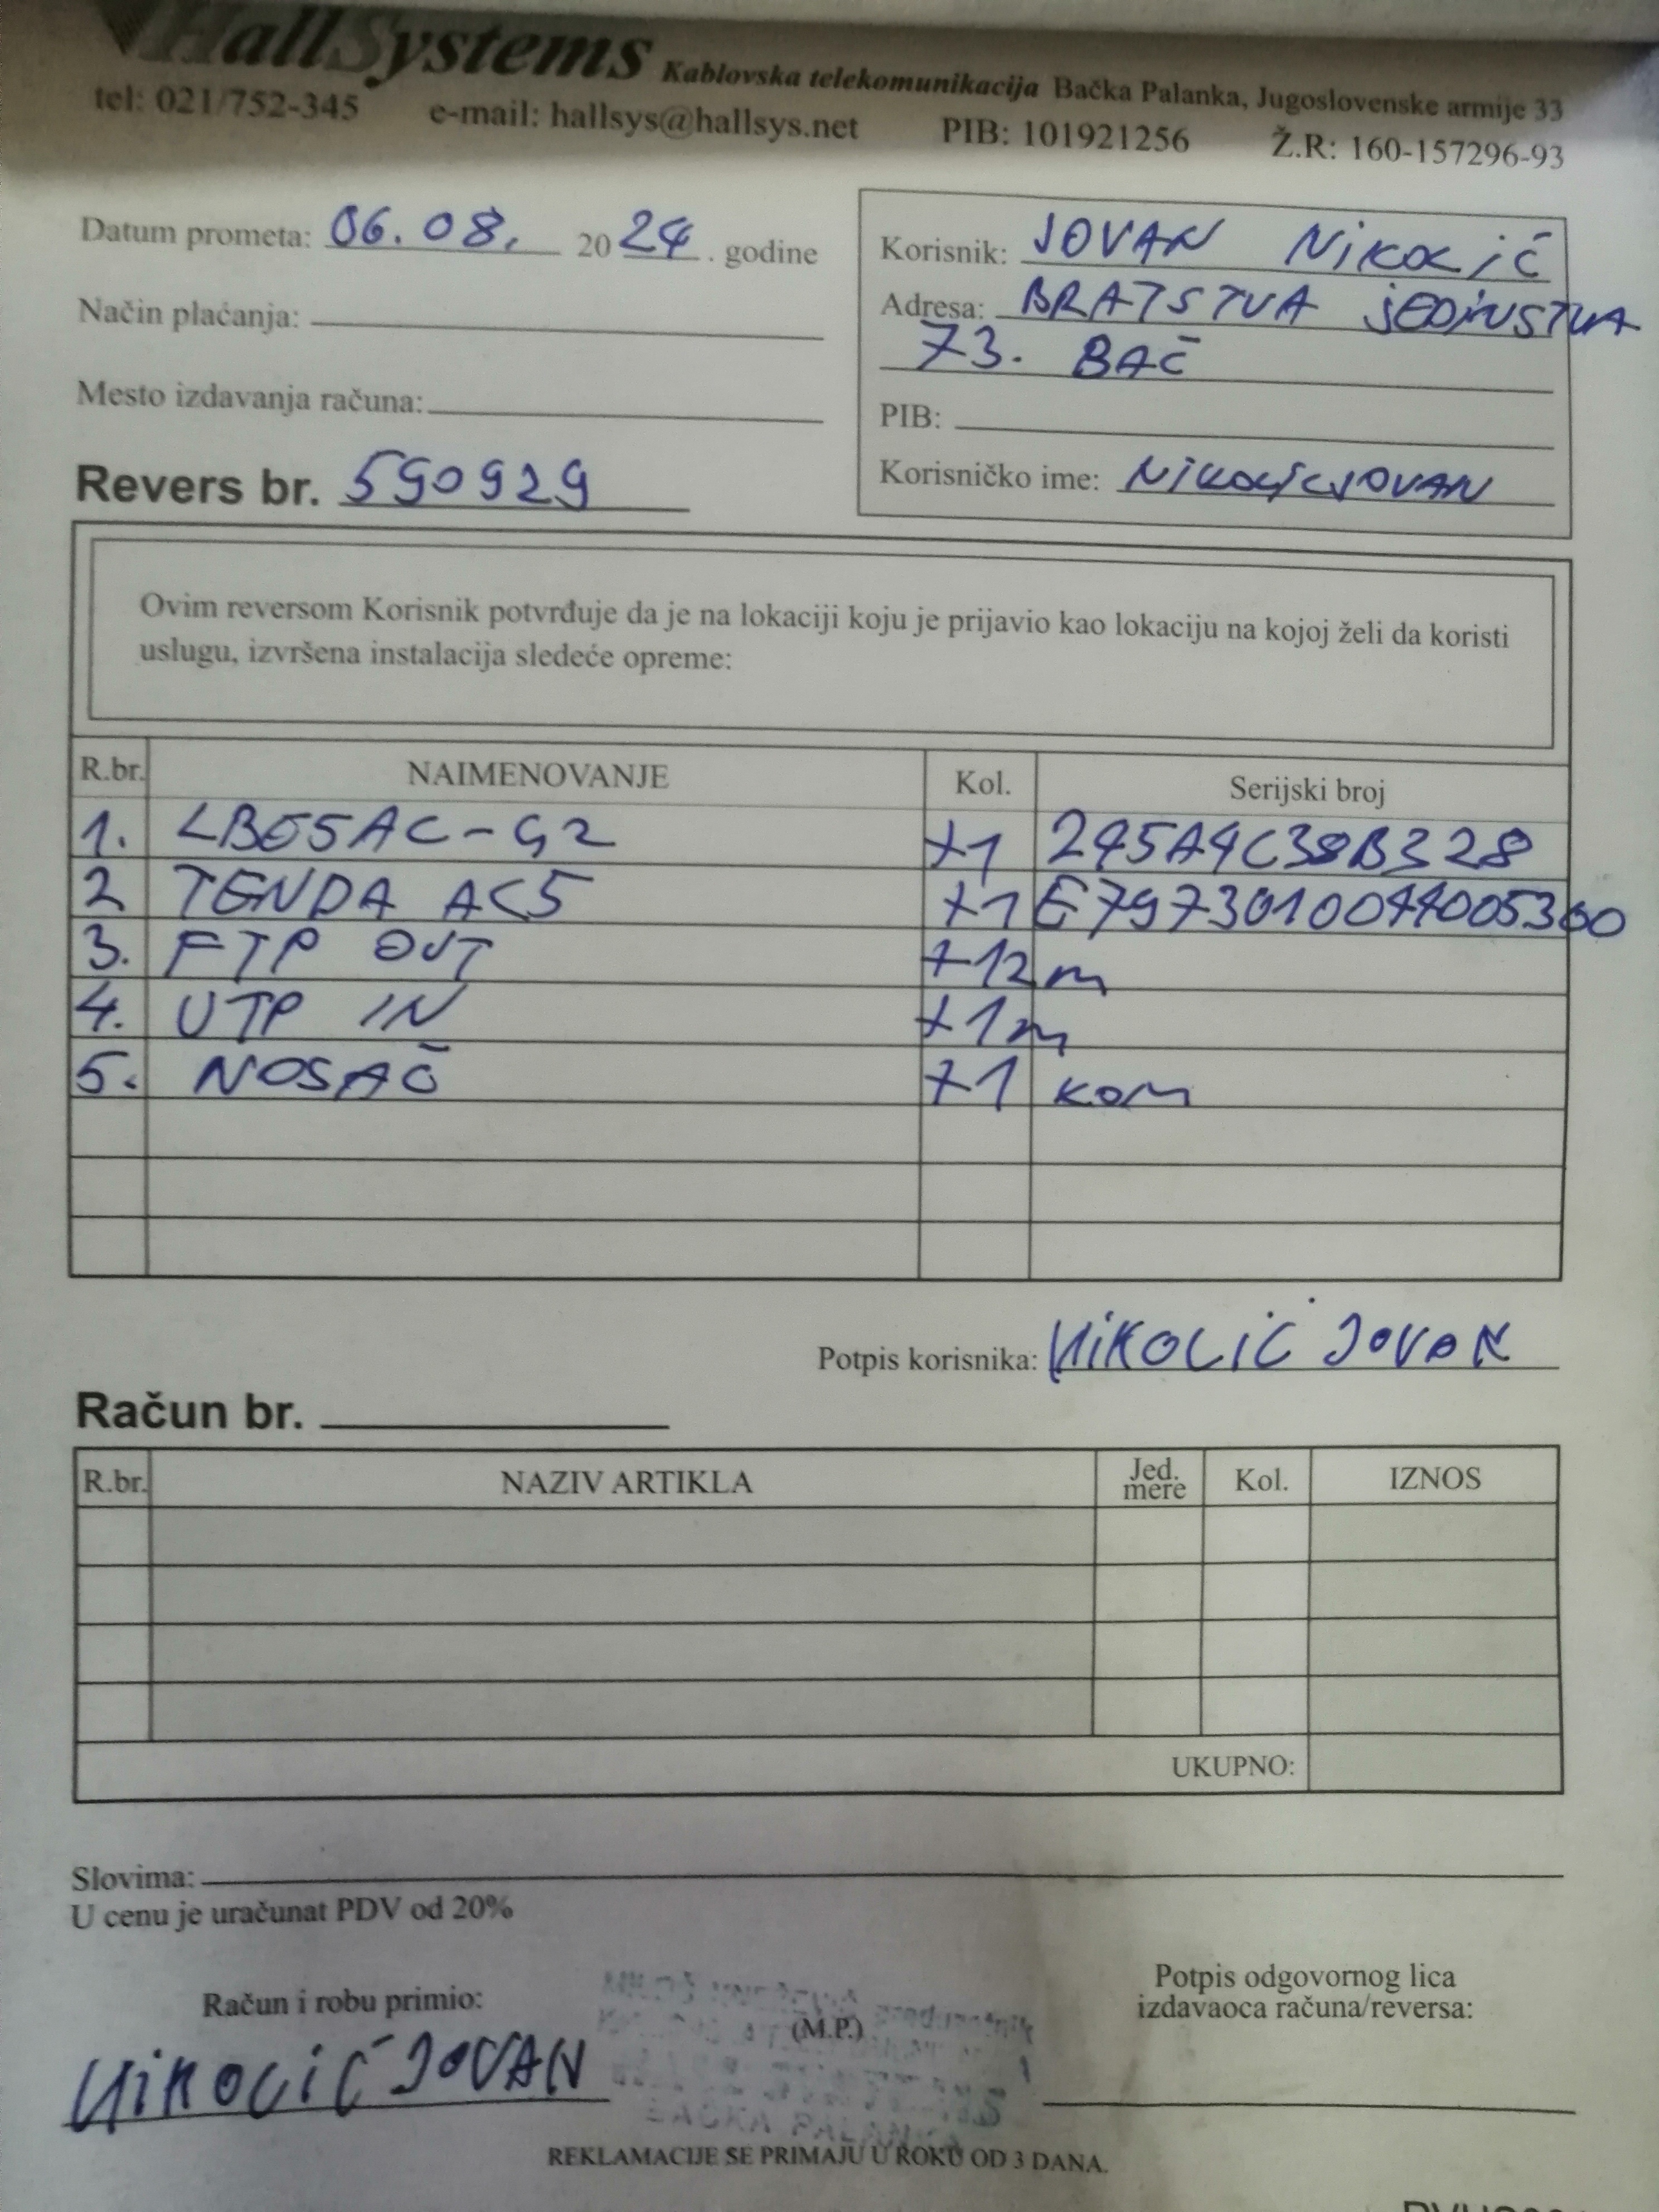 HallSystems Kablovska telekomunikacija Bačka Palanka, Jugoslovenske armije 33
tel: 021/752-345 e-mail: hallsys@hallsys.net PIB: 101921256 Ž.R: 160-157296-93
Datum prometa: 06.08. 2024. godine
Način plaćanja:
Mesto izdavanja računa:
Revers br. 590929
Korisnik: JOVAN NiKOLiĆ
Adresa: BRATSTVA JEDiNSTVA
73. BAČ
PIB:
Korisničko ime: NiKOLiCJOVAN
Ovim reversom Korisnik potvrđuje da je na lokaciji koju je prijavio kao lokaciju na kojoj želi da koristi
uslugu, izvršena instalacija sledeće opreme:
R.br. NAIMENOVANJE Kol. Serijski broj
1. LBE5AC-G2 +1 245A4C38B328
2 TENDA AC5 +1 E7973010044005360
3. FTP OUT +12m
4. UTP IN +1m
5. NOSAČ +1 KOM
Potpis korisnika: NiKOLIĆ JOVAN
Račun br.
R.br. NAZIV ARTIKLA Jed. mere Kol. IZNOS
UKUPNO:
Slovima:
U cenu je uračunat PDV od 20%
Račun i robu primio:
NiKOLIĆ JOVAN
(M.P.)
BAČKA PALANKA
Potpis odgovornog lica
izdavaoca računa/reversa:
REKLAMACIJE SE PRIMAJU U ROKU OD 3 DANA.